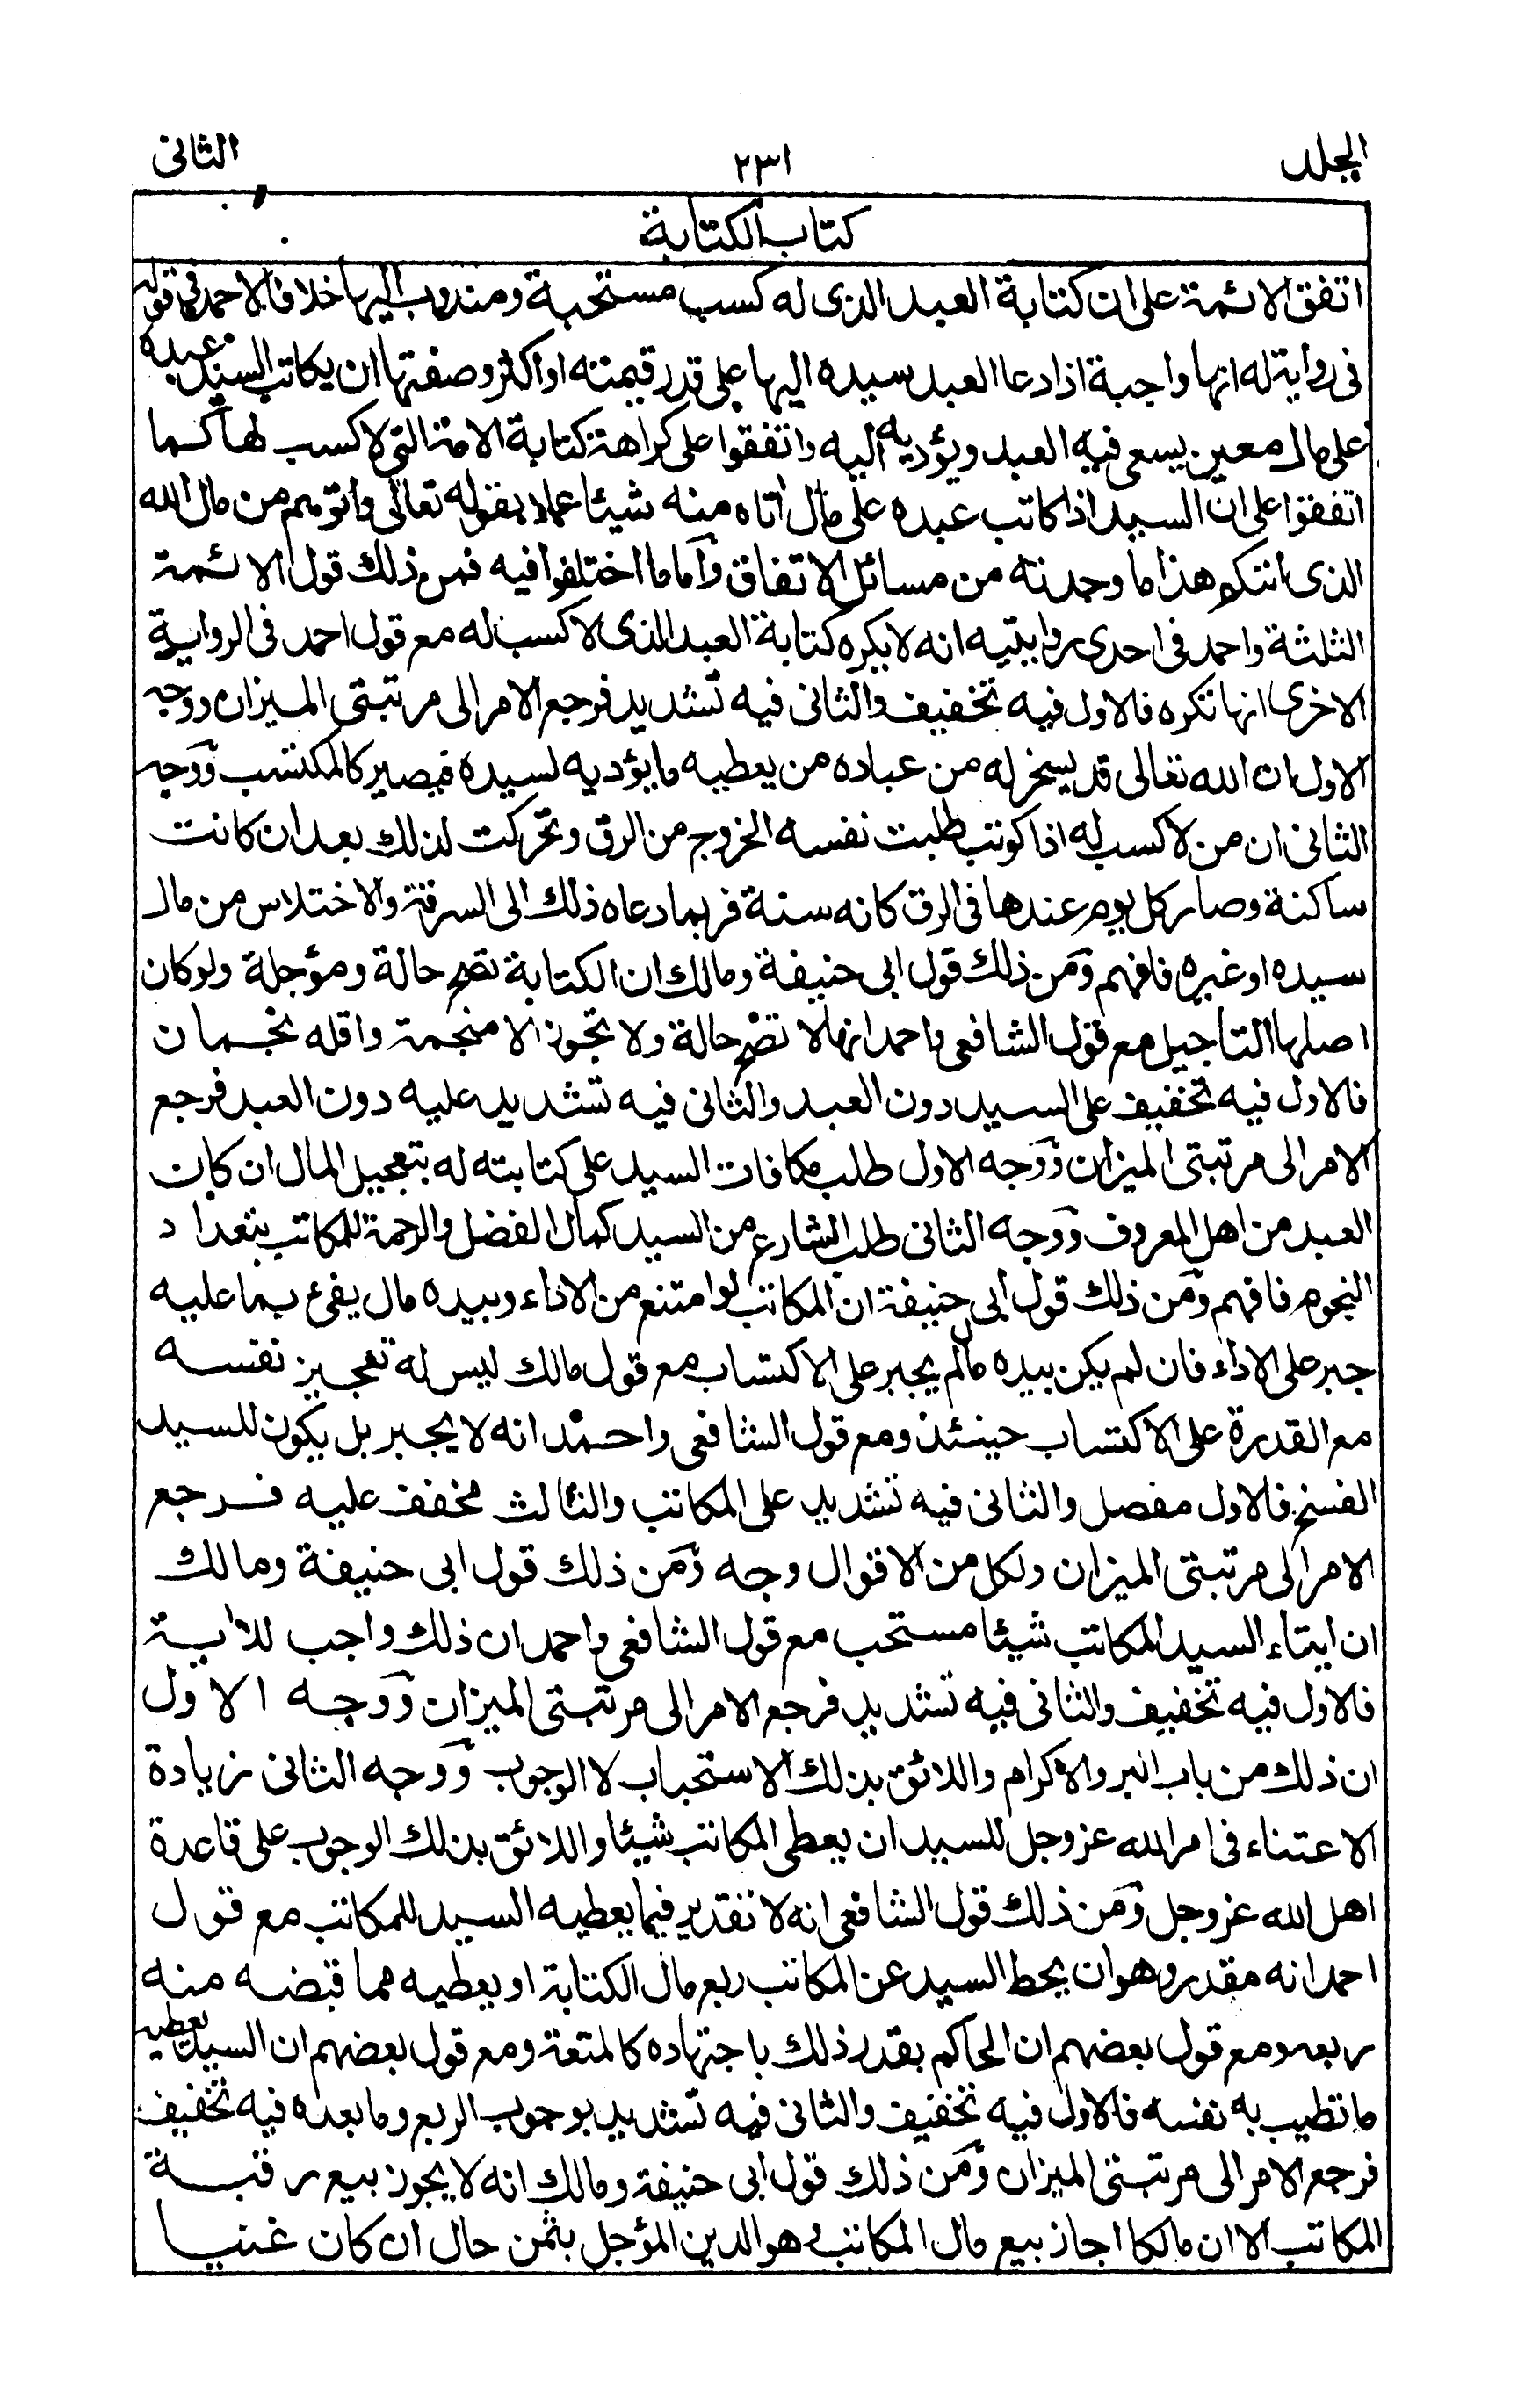 الجلد ٢٣١ الثانی
کتاب الکتابة
اتفق الائمة علی ان کتابة العبد الذی له کسب مستحبة ومندوب الیها خلافا لاحمد فی قوله
فی روایة له انها واجبة اذا دعا العبد سیده الیها علی قدر قیمته او اکثر وصفتها ان یکاتب السید عبده
علی مال معین یسعی فیه العبد ویؤدیه الیه واتفقوا علی کراهة کتابة الامة التی لا کسب لها کما
اتفقوا علی ان السید اذا کاتب عبده علی مال اتاه منه شیئا عملا بقوله تعالی واتوهم من مال الله
الذی اتٰکم هذا ما وجدته من مسائل الاتفاق وأما ما اختلفوا فیه فمن ذلك قول الائمة
الثلثة واحمد فی احدی روایتیه انه لا یکره کتابة العبد الذی لا کسب له مع قول احمد فی الروایة
الاخری انها تکره فالاول فیه تخفیف والثانی فیه تشدید فرجع الامر الی مرتبتی المیزان ووجه
الاول ان الله تعالی قد یسخر له من عباده من یعطیه ما یؤدیه لسیده فیصیر کالمکتسب ووجه
الثانی ان من لا کسب له اذا کوتب طلبت نفسه الخروج من الرق وتحرکت لذلك بعد ان کانت
ساکنة وصار کل یوم عندها فی الرق کانه سنة فربما دعاه ذلك الی السرقة والاختلاس من مال
سیده او غیره فافهم ومن ذلك قول ابی حنیفة ومالك ان الکتابة تصح حالة ومؤجلة ولو کان
اصلها التاجیل مع قول الشافعی واحمد انها لا تصح حالة ولا تجوز الا منجمة واقله نجمان
فالاول فیه تخفیف علی السید دون العبد والثانی فیه تشدید علیه دون العبد فرجع
الامر الی مرتبتی المیزان ووجه الاول طلب مکافات السید علی کتابته له بتعجیل المال ان کان
العبد من اهل المعروف ووجه الثانی طلب الشارع من السید کمال الفضل والرحمة للمکاتب بتعداد
النجوم فافهم ومن ذلك قول ابی حنیفة ان المکاتب لو امتنع من الاداء وبیده مال یفئ بما علیه
جبر علی الاداء فان لم یکن بیده مال لم یجبر علی الاکتساب مع قول مالك لیس له تعجیز نفسه
مع القدرة علی الاکتساب حینئذ ومع قول الشافعی واحمد انه لا یجبر بل یکون للسید
الفسخ فالاول مفصل والثانی فیه تشدید علی المکاتب والثالث مخفف علیه فرجع
الامر الی مرتبتی المیزان ولکل من الاقوال وجه ومن ذلك قول ابی حنیفة ومالك
ان ایتاء السید المکاتب شیئا مستحب مع قول الشافعی واحمد ان ذلك واجب للاٰیة
فالاول فیه تخفیف والثانی فیه تشدید فرجع الامر الی مرتبتی المیزان ووجه الاول
ان ذلك من باب البر والاکرام واللائق بذلك الاستحباب لا الوجوب ووجه الثانی زیادة
الاعتناء فی امر الله عزوجل للسید ان یعطی المکاتب شیئا واللائق بذلك الوجوب علی قاعدة
اهل الله عزوجل ومن ذلك قول الشافعی انه لا تقدیر فیما یعطیه السید للمکاتب مع قول
احمد انه مقدر وهو ان یحط السید عن المکاتب ربع مال الکتابة او یعطیه مما قبضه منه
ربعه ومع قول بعضهم ان الحاکم یقدر ذلك باجتهاده کالمتعة ومع قول بعضهم ان السید یعطیه
ما تطیب به نفسه فالاول فیه تخفیف والثانی فیه تشدید بوجوب الربع وما بعده فیه تخفیف
فرجع الامر الی مرتبتی المیزان ومن ذلك قول ابی حنیفة ومالك انه لا یجوز بیع رقبة
المکاتب الا ان مالکا اجاز بیع مال المکاتب وهو الدین المؤجل بثمن حال ان کان غنیا